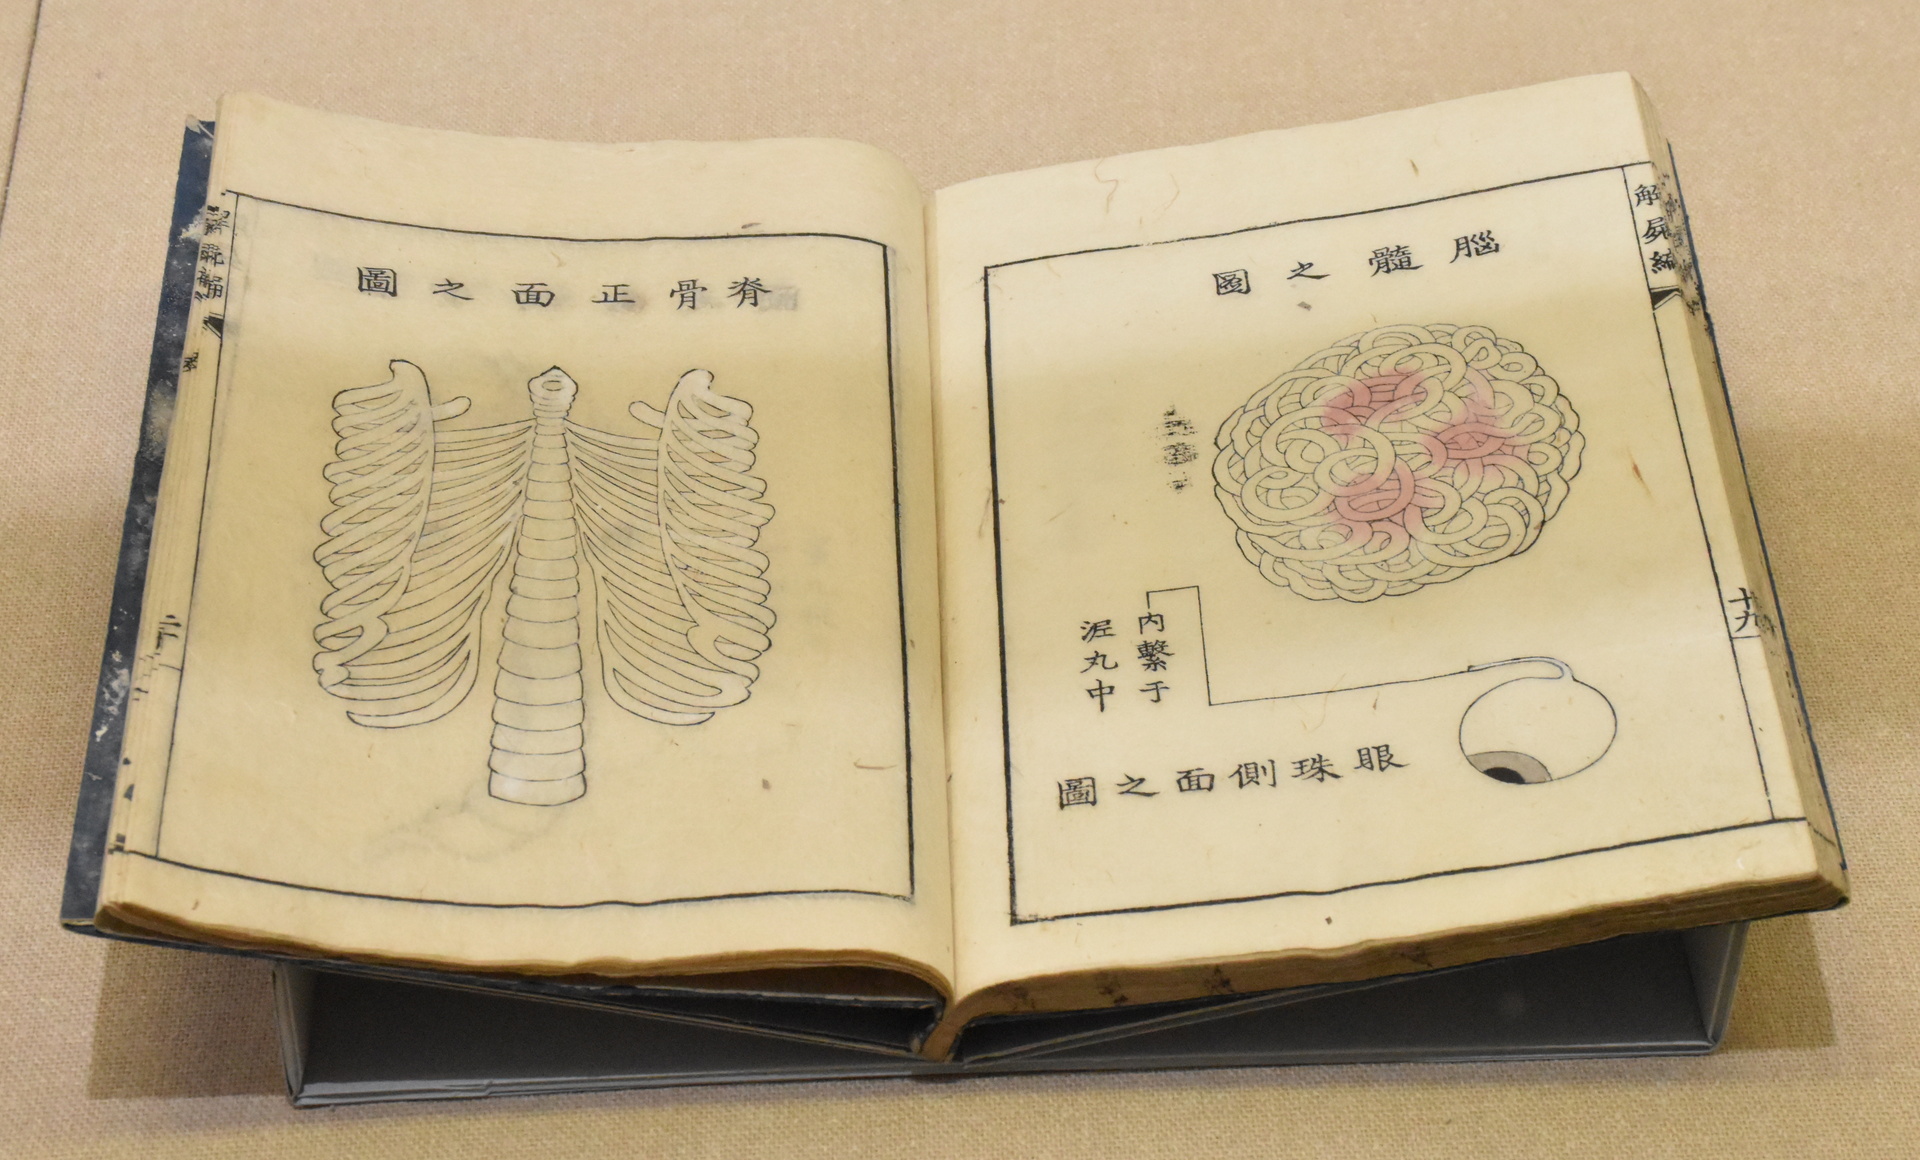 解屍編
十九
腦髓之圖
內繫于
泥丸中
眼珠側面之圖
脊骨正面之圖
二十